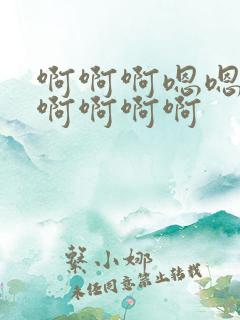 啊啊啊嗯嗯
啊啊啊啊
蔡小娜
未经同意禁止转载